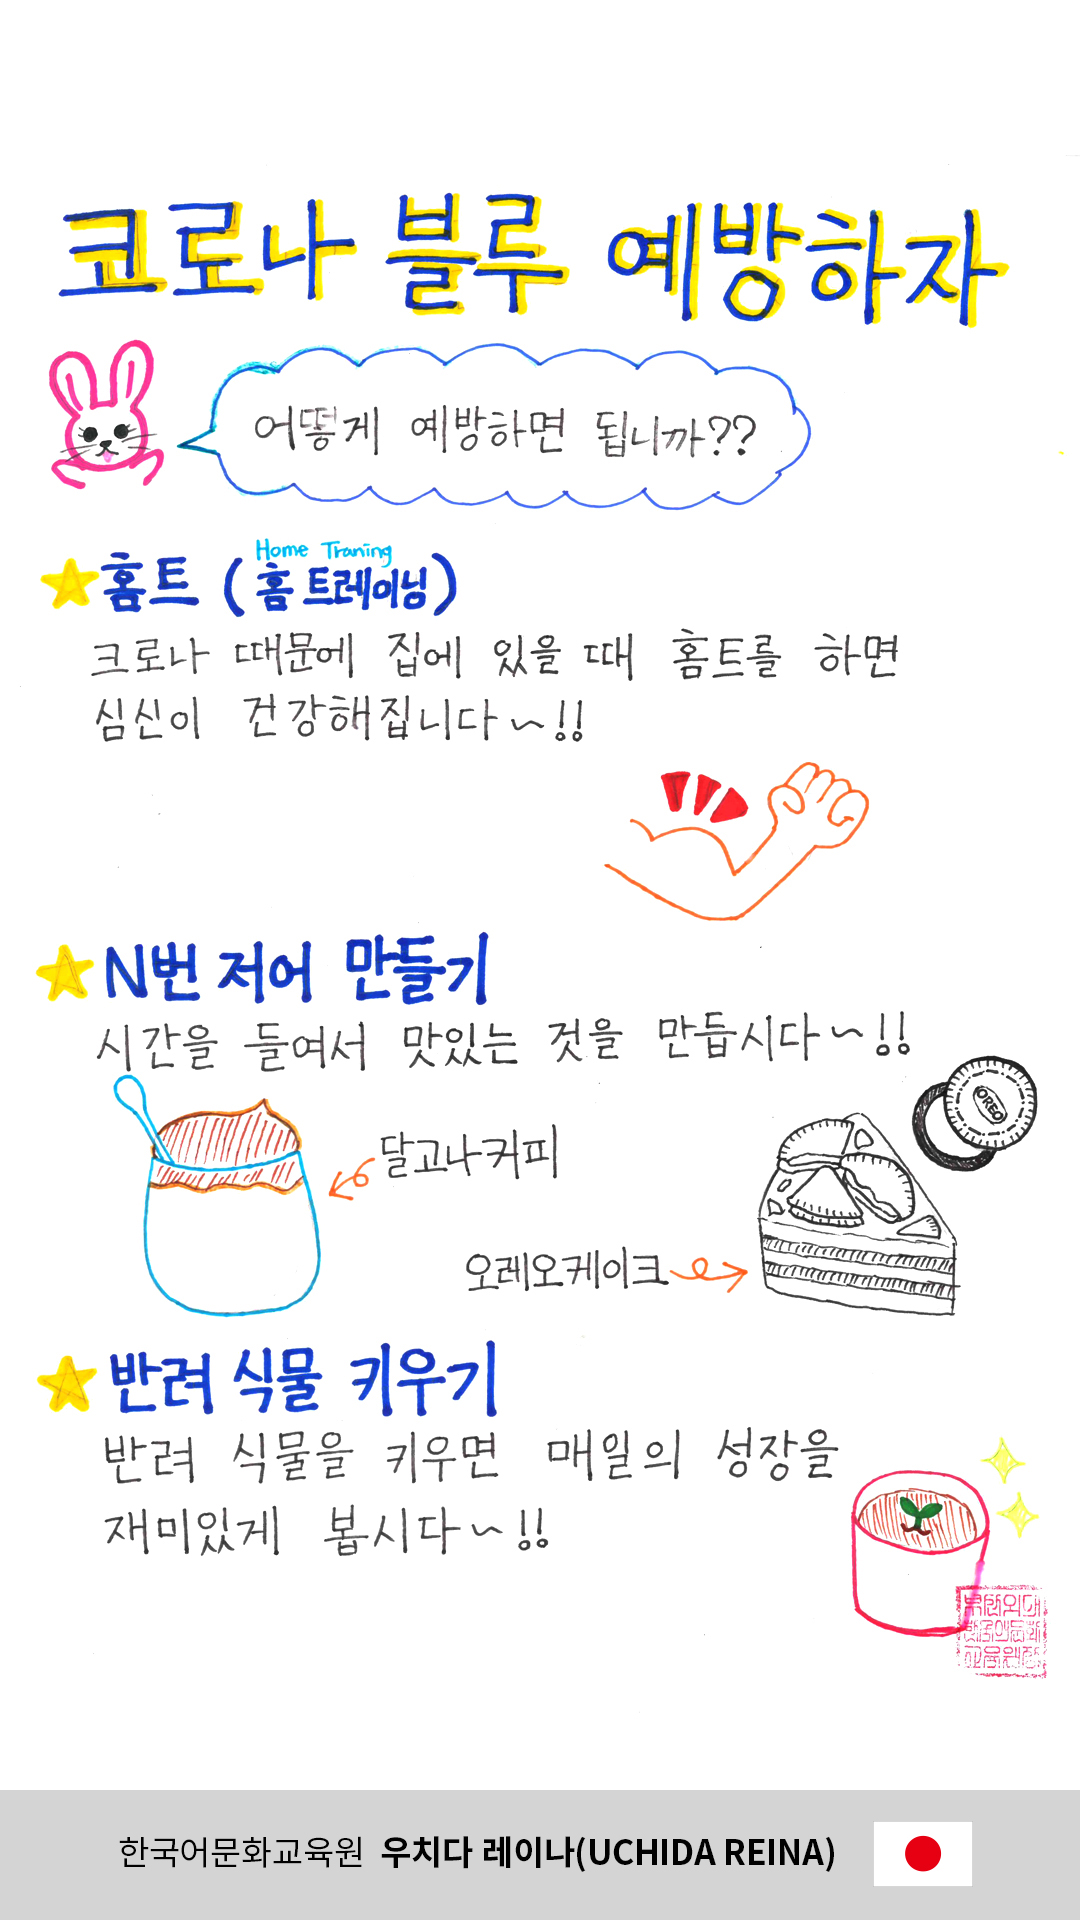 코로나 블루 예방하자
어떻게 예방하면 됩니까??
Home Traning
홈트 (홈 트레이닝)
크로나 때문에 집에 있을 때 홈트를 하면
심신이 건강해집니다~!!
N번 저어 만들기
시간을 들여서 맛있는 것을 만듭시다~!!
OREO
달고나커피
오레오케이크
반려 식물 키우기
반려 식물을 키우면 매일의 성장을
재미있게 봅시다~!!
한국어문화교육원 우치다 레이나(UCHIDA REINA)